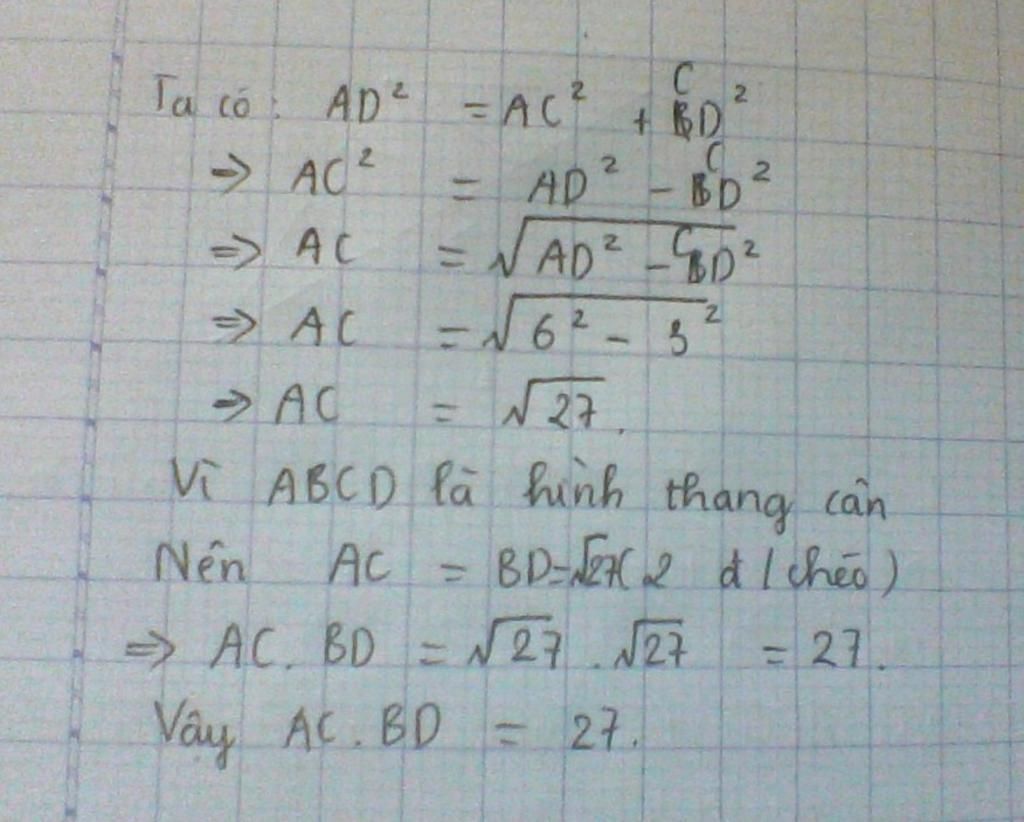 Ta có: AD² = AC² + CD²
⇒ AC² = AD² - CD²
⇒ AC = √AD² - CD²
⇒ AC = √6² - 3²
⇒ AC = √27.
Vì ABCD là hình thang cân
Nên AC = BD=√27( 2 đ/chéo)
⇒ AC. BD = √27 . √27 = 27.
Vậy AC. BD = 27.